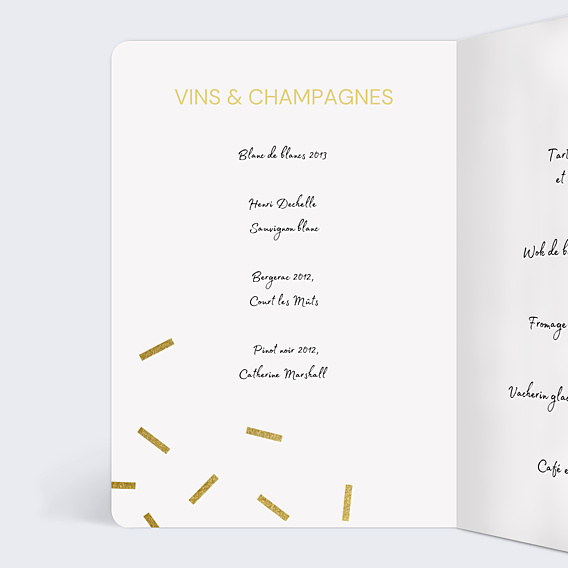 VINS & CHAMPAGNES
Blanc de blancs 2013
Henri Dechelle
Sauvignon blanc
Bergerac 2012,
Court les Mûts
Pinot noir 2012,
Catherine Marshall
et
Wok de
Fromage
Vacherin
Café